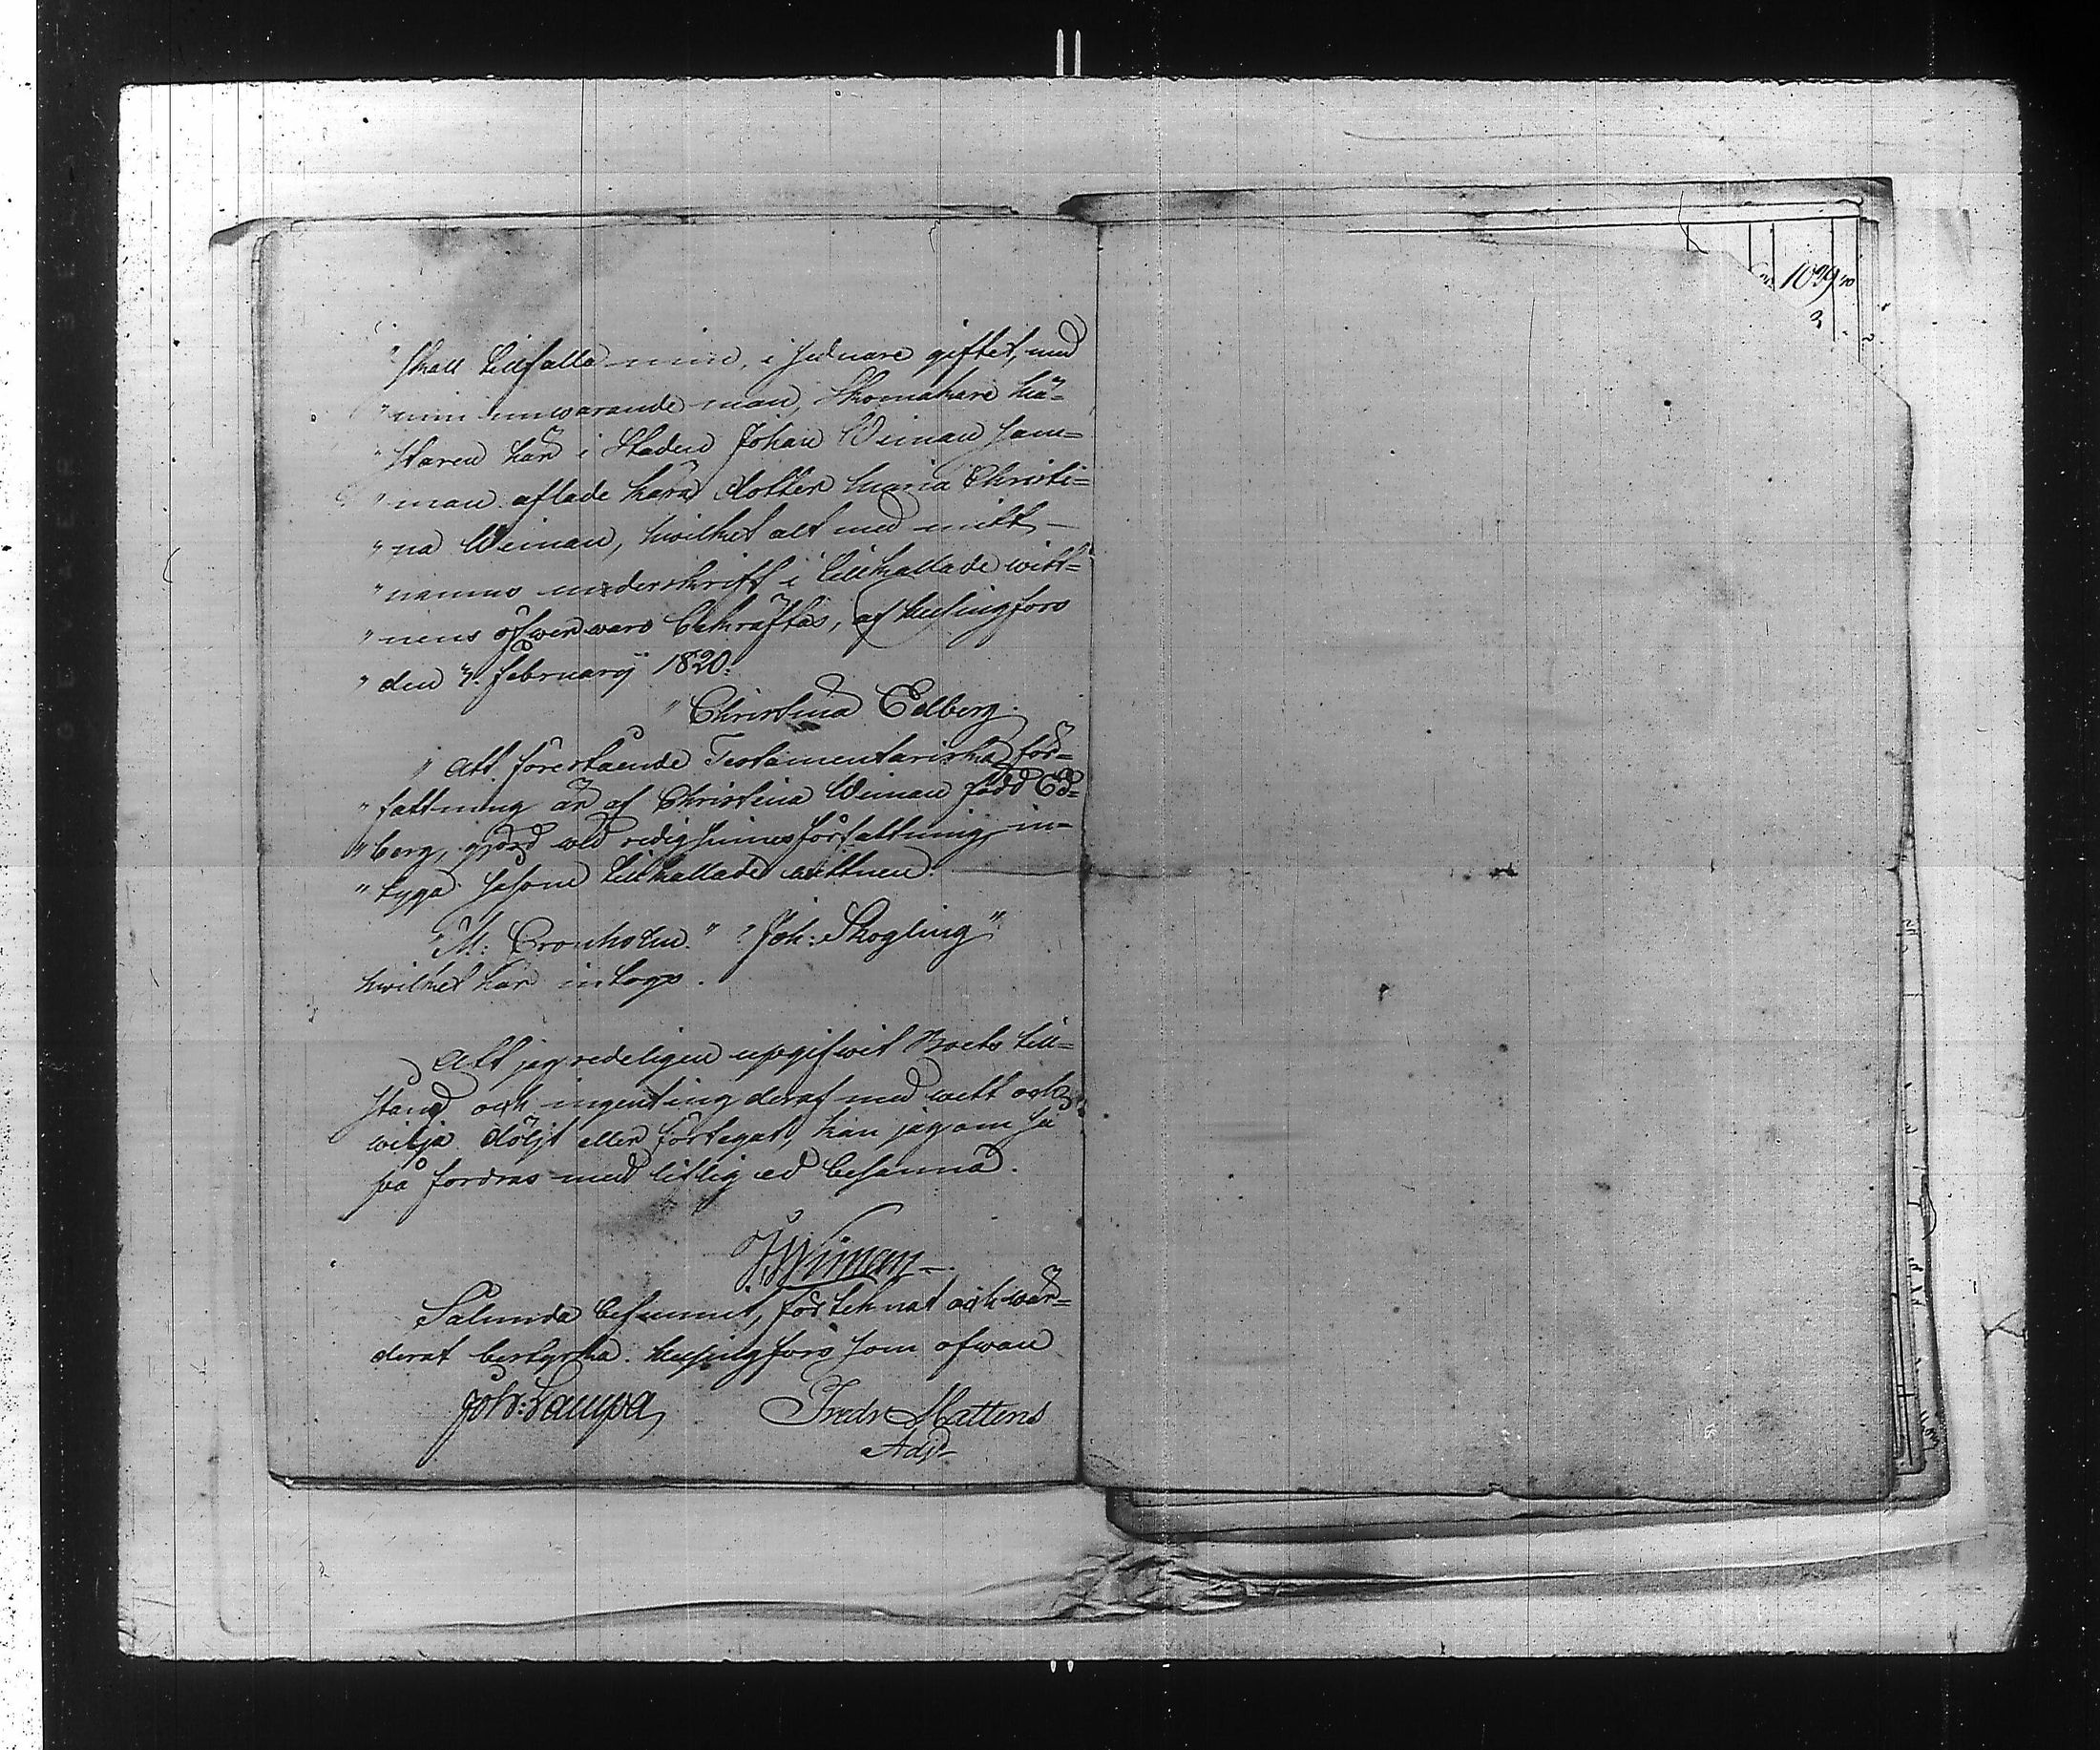 " skall tillfalla min, i sednare giftet, med
" min nuwarande man, Skomakare Mä-
" staren här i Staden Johan Weman sam-
" man aflade kära dotter Maria Christi-
" na Weman, hwilket alt med mitt
" namns underskrift i tillkallade witt-
" nens öfwerwaro bekräftas, af Helsingfors
" den 3. February 1820.
" Christina Edberg.
" Att förestående Testamentariska för-
" fattning är af Christina Weman född Ed-
" berg, gjord wid redig sinnesförfattning, in-
" tyga såsom tillkallade wittnen.
" M: Cronholm." " Joh: Skogling"
hwilket här intogs.
Att jag redeligen uppgifwit Boets till-
stånd och ingenting deraf med wett och
wilja döljt eller förtegat, kan jag om så
på fordras med liflig ed besanna.
J. Wiman
Sålunda befunnit, förteknat och wär-
derat bestyrka. Helsingfors som ofwan
Joh: Lampa Fredr Mattens
Adj
1099 40
3